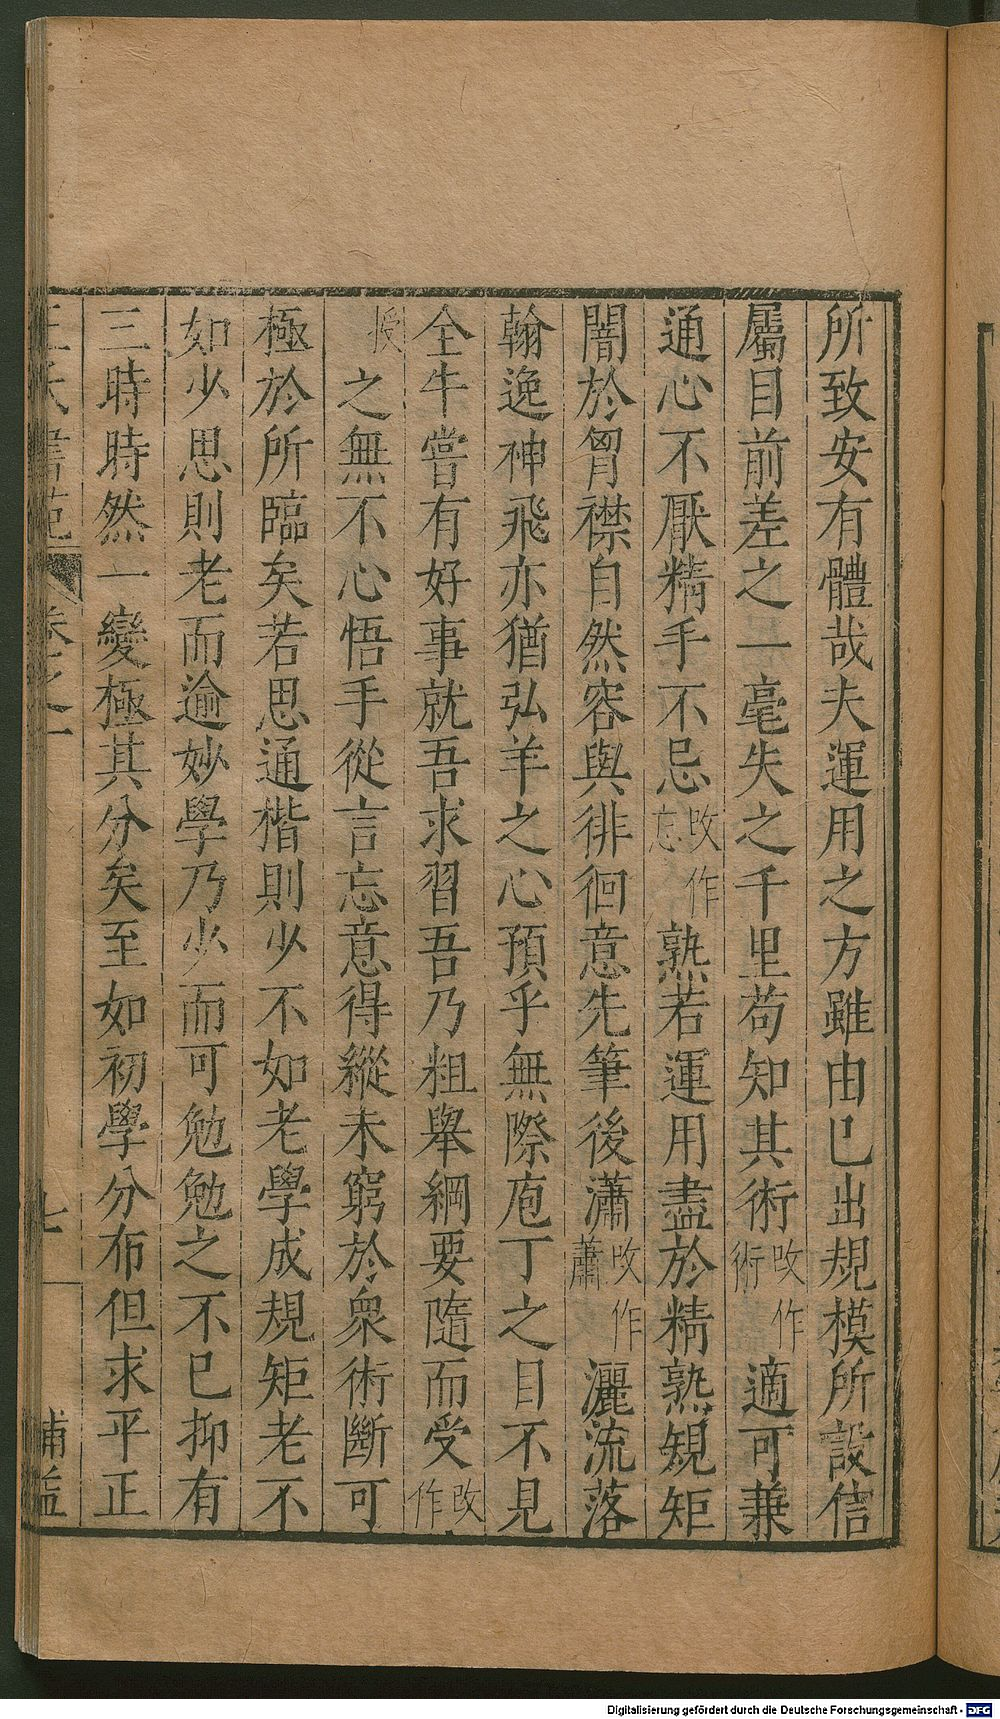 所致安有體哉夫運用之方雖由巳出規模所設信
屬目前差之一毫失之千里苟知其術攺作術適可兼
通心不厭精手不忌攺作忘熟若運用盡於精熟規矩
闇於胷襟自然容與徘徊意先筆後瀟攺作蕭灑流落
翰逸神飛亦猶弘羊之心預乎無際庖丁之目不見
全牛嘗有好事就吾求習吾乃粗舉綱要隨而受攺作
授之無不心悟手從言忘意得縱未窮於衆術斷可
極於所臨矣若思通楷則少不如老學成規矩老不
如少思則老而逾妙學乃少而可勉勉之不巳抑有
三時時然一變極其分矣至如初學分布但求平正
王氏書苑 卷之一 七
Digitalisierung gefördert durch die Deutsche Forschungsgemeinschaft - DFG